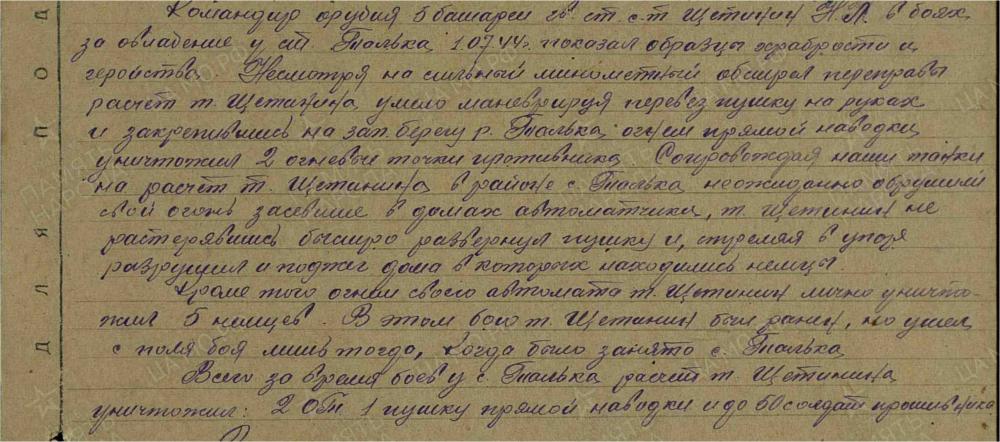 Командир орудия 5 батареи гв. ст. с-т Щетинин Н.П. в боях
за овладение у ст. Талька 1.07.44г. показал образцы храбрости и
геройства. Несмотря на сильный минометный обстрел переправы
расчет т. Щетинина умело маневрируя перевез пушку на руках
и закрепившись на зап. берегу р. Талька огнем прямой наводки
уничтожил 2 огневые точки противника Сопровождая наши танки
на расчет т. Щетинина в районе с. Талька неожиданно обрушили
свой огонь засевшие в домах автоматчики, т. Щетинин не
растерявшись быстро развернул пушку и, стреляя в упор
разрушил и поджег дома в которых находились немцы
Кроме того огнем своего автомата т. Щетинин лично уничто-
жил 5 немцев. В этом бою т. Щетинин был ранен, но ушел
с поля боя лишь тогда, когда было занято с. Талька
Всего за время боев у с. Талька расчет т. Щетинина
уничтожил: 2 ОТ 1 пушку прямой наводки и до 50 солдат противника
Д Л Я П О Д